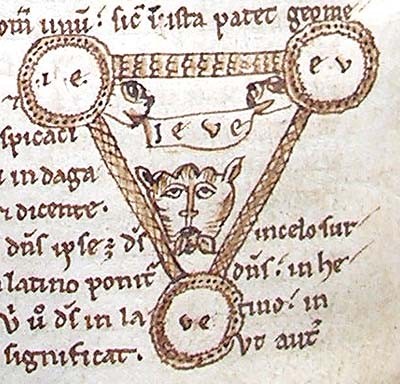 unū: sic ī ista patet geome
.I.E. E V
IEVE
spicaci
in daga
dicente.
dn̄s ipse ꝫ dn̄s in celo sur
latino ponit̄ dn̄s: in he
u̇o dn̄s in la tino: in
VE
significat. ut aut̄